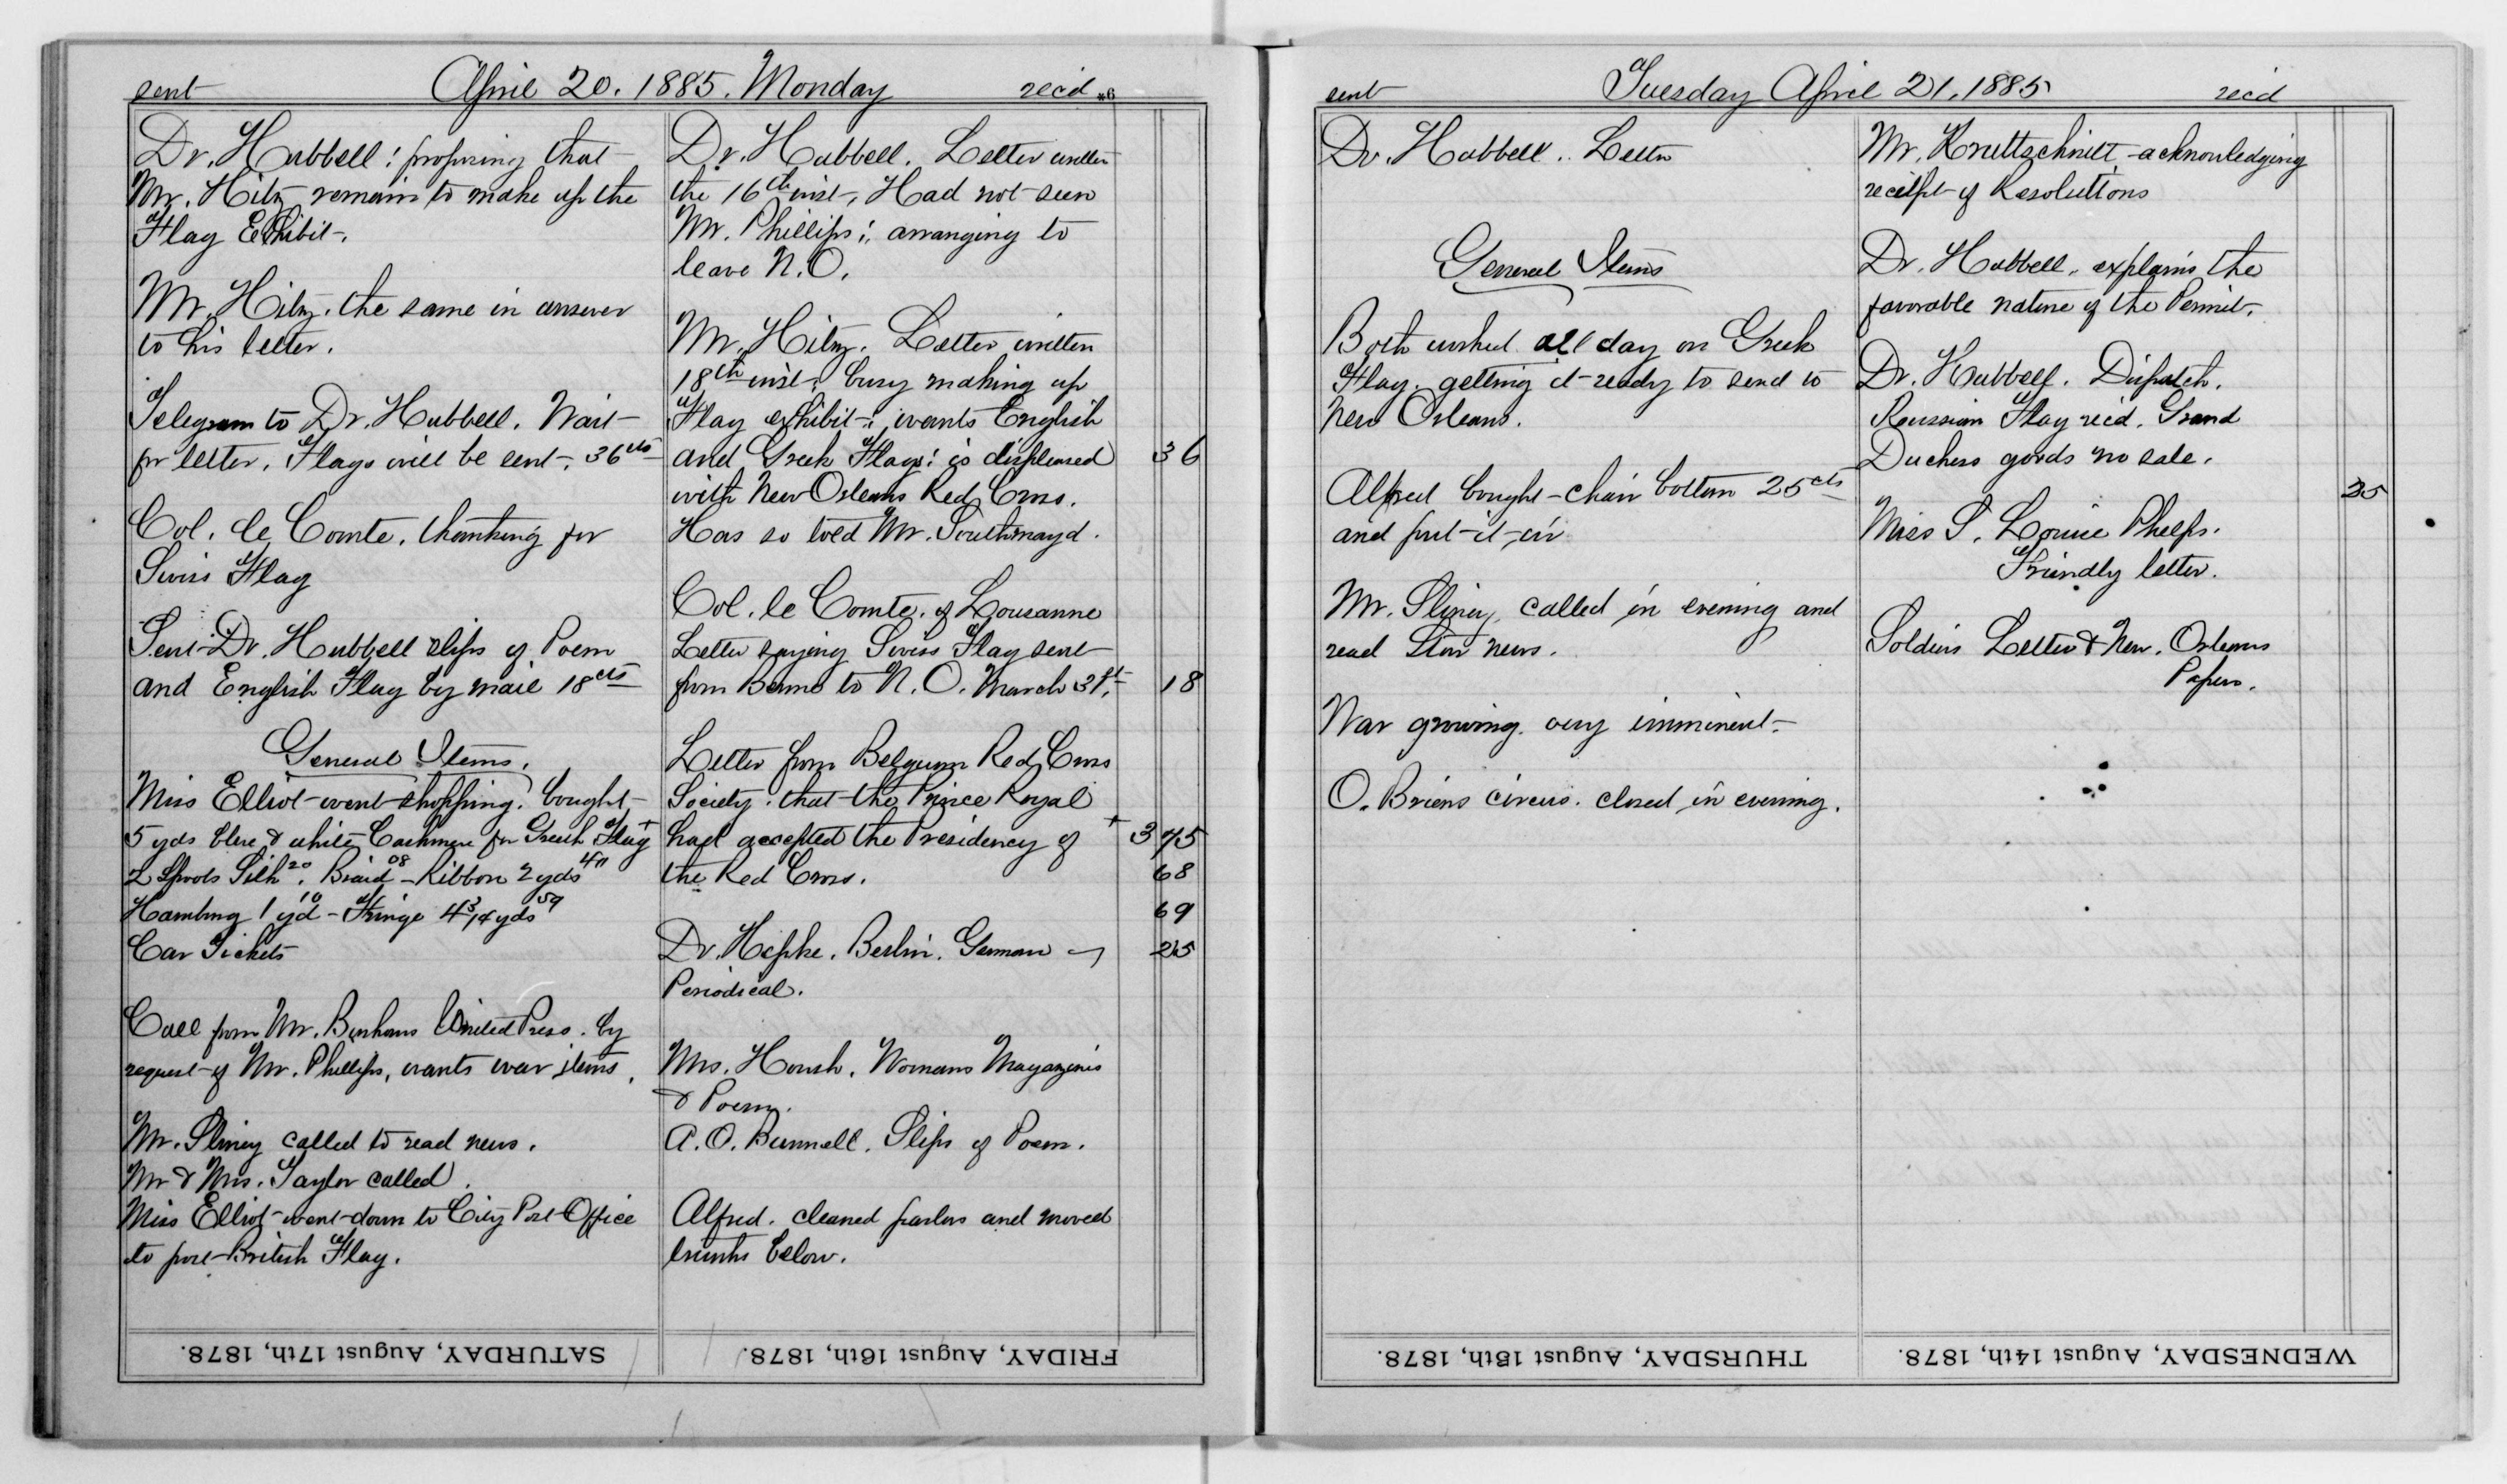 sent April 20. 1885. Monday rec'd
Dr. Hubbell: proposing that
Mr. Hitz remain to make up the
Flag Exhibit.
Mr. Hitz. the same in answer
to his letter.
Telegram to Dr. Hubbell. Wait
for letter. Flags will be sent. 36cts
Col. le Comte. thanking for
Swiss Flag
Sent Dr. Hubbell slips of Poem
and English Flag by mail 18cts
General Items.
Miss Elliot went shopping. bought
5 yds blue & white Cashmere for Greek Flag +
2 Spools Silk 20. Braid 08 - Ribbon 2 yds 40
Hamburg 1 yd 10 - Fringe 4 3/4 yds 59
Car Tickets
Call from Mr. Benhams United Press. by
request of Mr. Phillips, wants war items.
Mr. Sliney called to read news.
Mr & Mrs. Taylor called.
Miss Elliot went down to City Post Office
to post British Flag.
Dr. Hubbell. Letter written
the 16th inst. Had not seen
Mr. Phillips: arranging to
leave N.O.
Mr. Hitz. Letter written
18th inst: busy making up
Flag exhibit: wants English
and Greek Flags: is displeased 36
with New Orleans Red Cross.
Has so told Mr. Southmayd.
Col. le Comte. of Lousanne
Letter saying Swiss Flag sent
from Berne to N.O. March 31st. 18
Letter from Belgium Red Cross
Society. that the Prince Royal
had accepted the Presidency of + 3 75
the Red Cross. 68
69
Dr. Hepke. Berlin. German 25
Periodical.
Mrs. Housh. Womans Magazines
& Poem.
A. O. Bunnell. Slips of Poem.
Alfred. cleaned parlors and moved
trunks below.
SATURDAY, August 17th, 1878.
FRIDAY, August 16th, 1878.
sent Tuesday April 21, 1885 rec'd
Dr. Hubbell. Letter
General Items
Both worked all day on Greek
Flag. getting it ready to send to
New Orleans.
Alfred bought chair bottom 25cts
and put it in
Mr. Sliney, called in evening and
read Star news.
War growing very imminent.
O. Briens circus. closed in evening.
Mr. Kruttschnitt acknowledging
receipt of Resolutions
Dr. Hubbell. explains the
favorable nature of the Permit.
Dr. Hubbell. Dispatch.
Roussian Flag rec'd. Grand
Duchess goods no sale.
25
Miss S. Louise Phelps.
Friendly letter.
Soldiers Letter & New. Orleans
Papers.
THURSDAY, August 15th, 1878.
WEDNESDAY, August 14th, 1878.